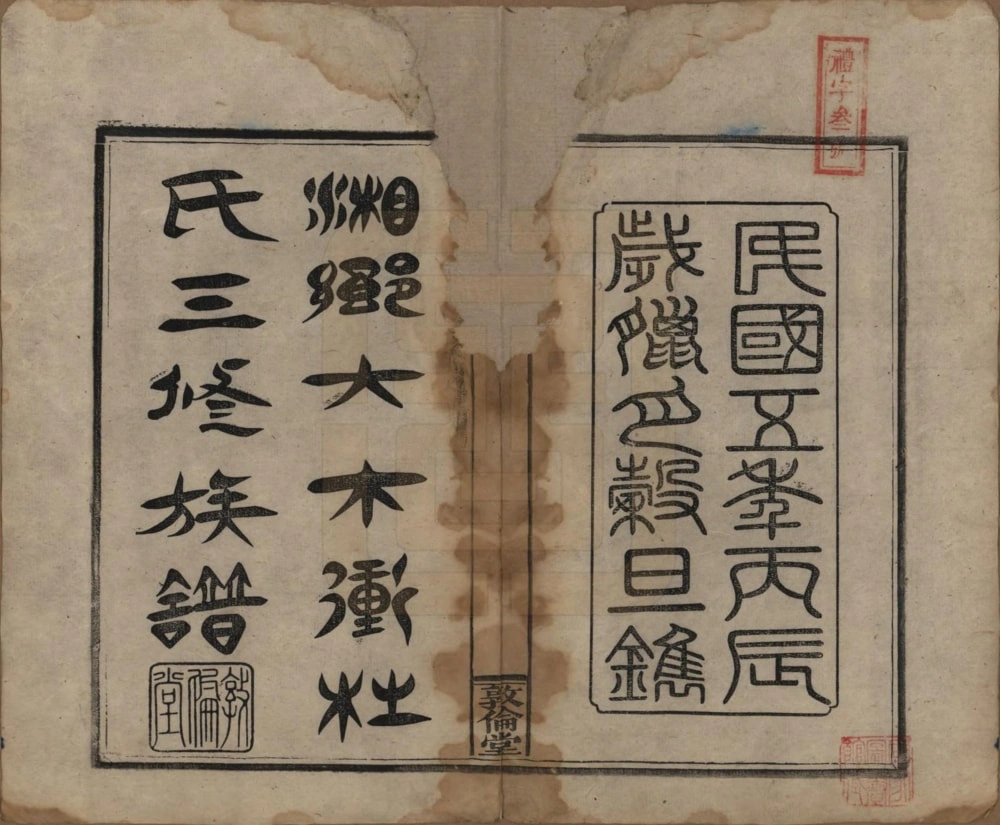 禮字叁號
民國五年丙辰
歲臘月穀旦鐫
敦倫堂
湘鄉大木衝杜
氏三修族譜
敦倫堂